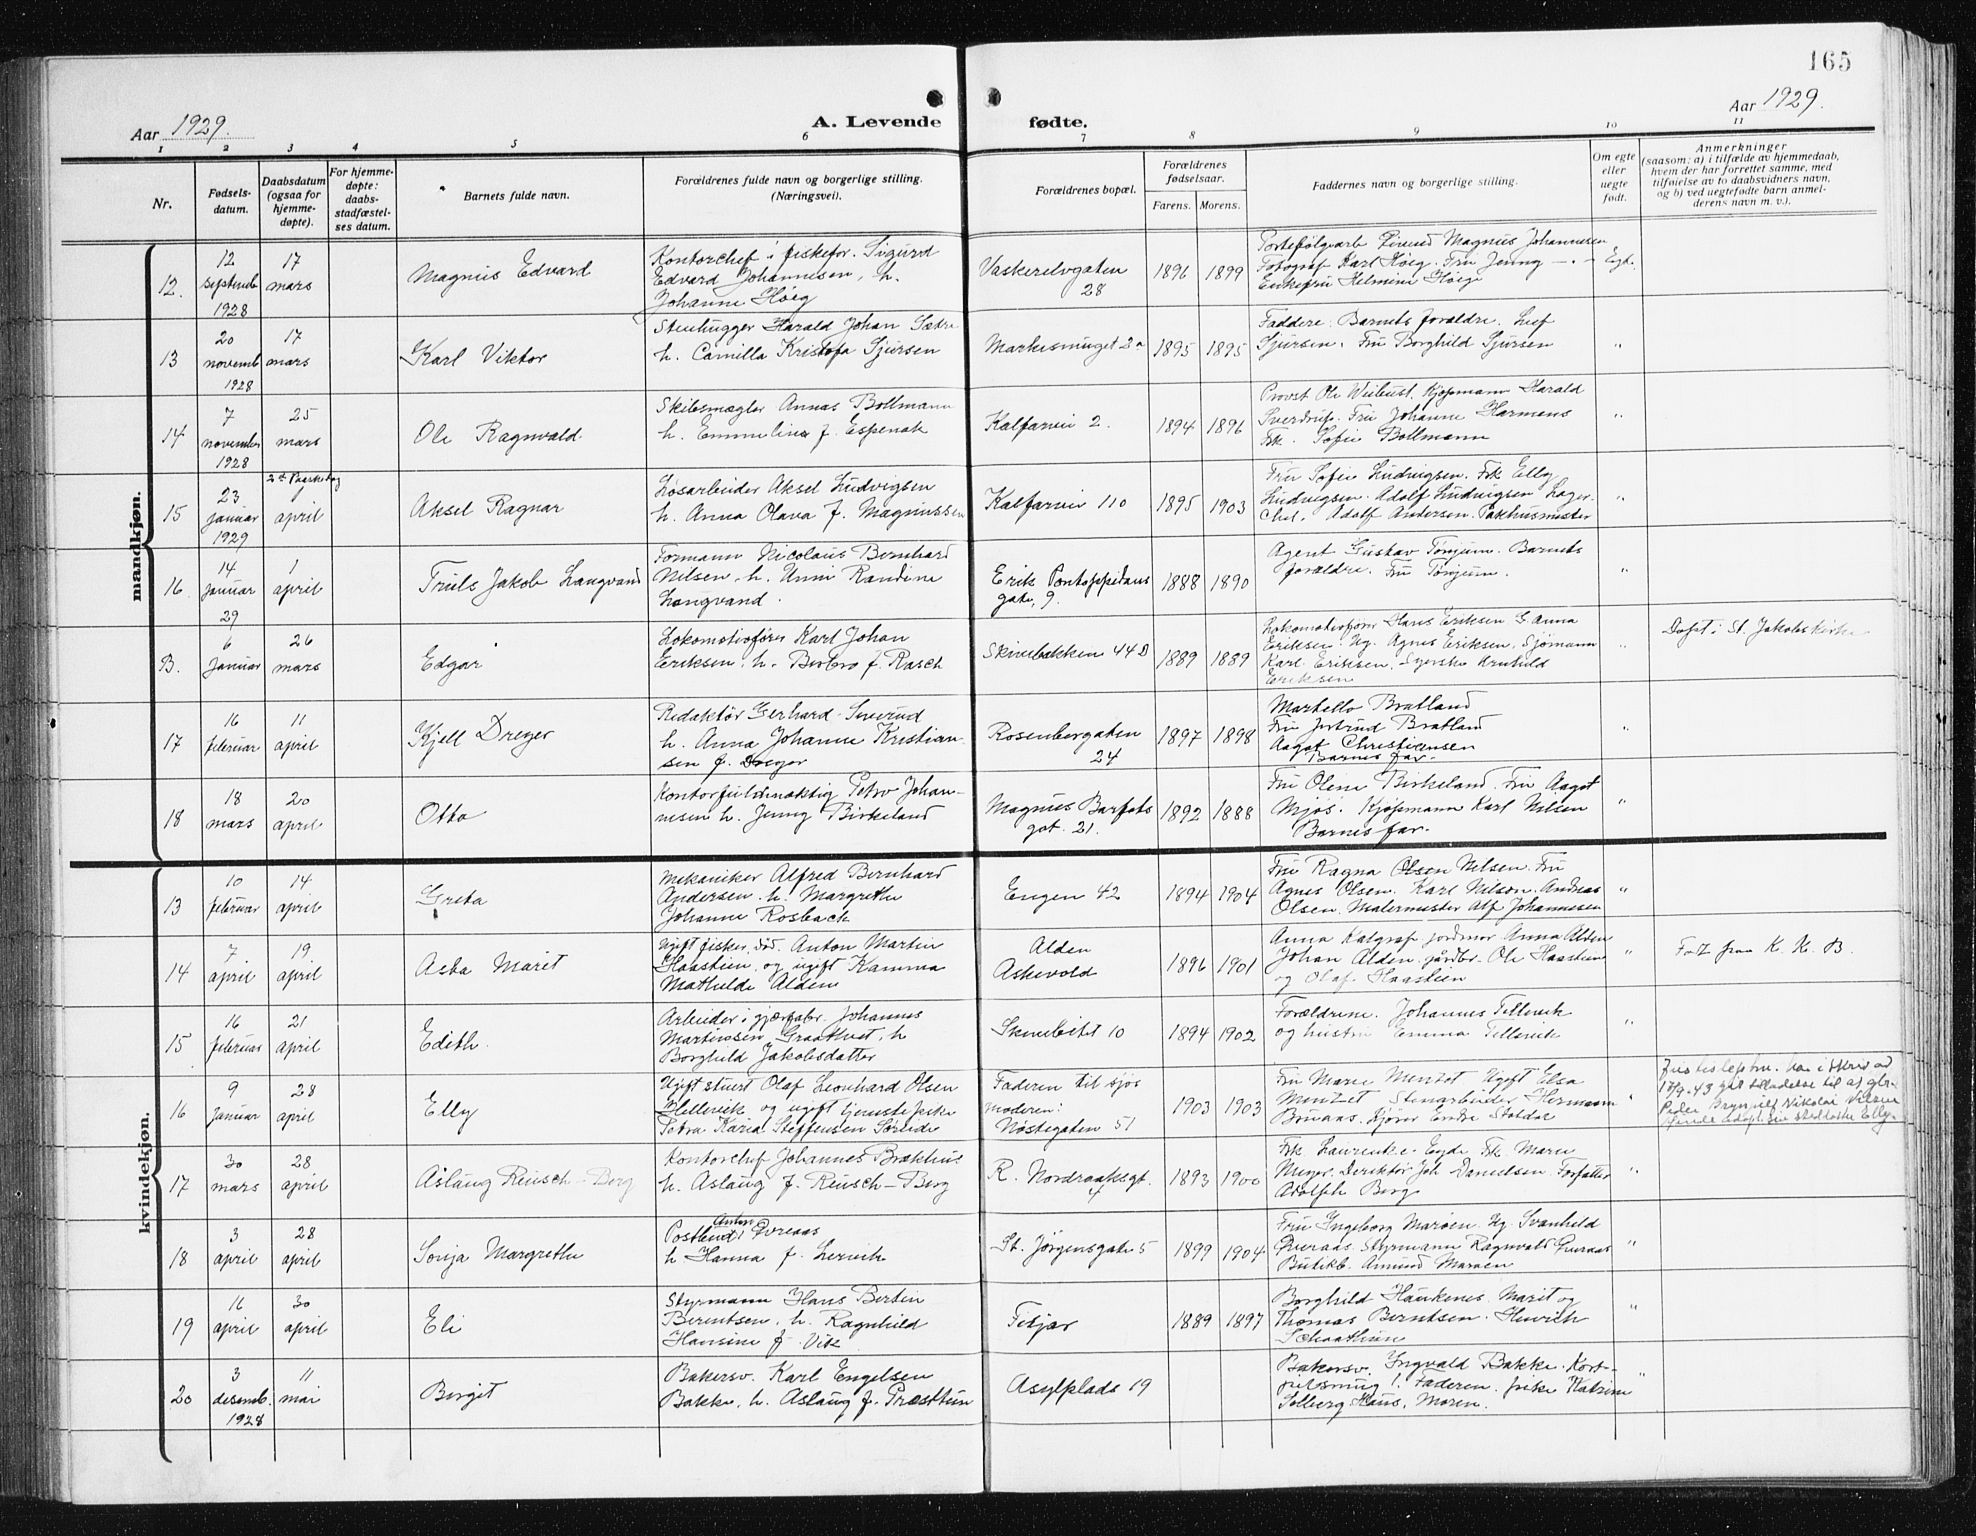 165
Aar 1929.
A. Levende
fødte.
Aar 1929.
1 2 3 4 5 6 7 8 9 10 11
Nr.
Fødsels-
datum.
Daabsdatum
(ogsaa for
hjemme-
døpte).
For hjemme-
døpte:
daabs-
stadfæstel-
ses datum.
Barnets fulde navn.
Forældrenes fulde navn og borgerlige stilling.
(Næringsvei).
Forældrenes bopæl.
Forældrenes
fødselsaar.
Farens. Morens.
Faddernes navn og borgerlige stilling.
Om egte
eller
uegte
født.
Anmerkninger
(saasom: a) i tilfælde av hjemmedaab,
hvem der har forrettet samme, med
tilføielse av to daabsvidners navn,
og b) ved uegtefødte barn anmel-
derens navn m. v.).
mandkjøn.
12.
12
septemb
1928
17
mars
Magnus Edvard
Kontorchef i fiskefor. Sigurd
Edvard Johannesen, h.
Johanne Høeg
Vaskerelvgaten
28
1896 1899
Magnus Johannesen
Fotograf Karl Høeg. Fru Jenny
Enkefru Helmine Høeg
Egt.
13
20
novemb
1928
17
mars
Karl Viktor
Stenhugger Harald Johan Sætre
h. Camilla Kristofa Sjursen
Markusmuget 2a
1895 1895
Faddere. Barnets foraldre. Leif
Sjursen. Fru Borghild Sjursen
"
14
7
november
1928
25
mars
Ole Ragnvald
Skibsmægler Annas Bollmann
h. Emmeline f. Espenak
Kalfarvei 2.
1894 1896
Provst Ole Kjøpmann Harald
Sverdrup. Fru Johanne Harmens
Frk. Sofie Bollmann
"
15
23
januar
1929
2den Paaskedag
april
Aksel Ragnar
Løsarbeider Aksel Ludvigsen
h. Anna Olava f. Magnussen
Kalfarvei 110
1895 1903
Fru Sofie Ludvigsen. Frk Elly
Ludvigsen. Adolf Ludvigsen Lager-
chef. Adolf Andersen. Pakhusmester
"
16
14
januar
29
1
april
Truls Jakob Langvand
Formann Nicolaus Bernhard
Nilsen. h. Unni Randine
Langvand.
Erik Pontoppidans
gate, 9.
1888 1890
Agent Gustav Tønjum. Barnets
foraldre. Fru Tønjum.
"
B.
6
Januar
26
mars
Edgar
Lokomotivfører Karl Johan
Eriksen. h. Borbro f. Rasch
Skivebakken 44 D
1889 1889
Lokomotivfører Hans Eriksen G. Anna
Eriksen. Ug. Agnes Eriksen, Sjømann
Karl Eriksen. Syerske
Eriksen
"
Døpt i St. Jakobskirke
17
16
februar
11
april
Kjell Dreyer
Redaktør Gerhard Sverud
h. Anna Johanne Kristian-
sen f. Dreyer
Rosenbergaten
24
1897 1898
Martello Bratland
Fru Jertrud Bratland
Aagot Christiansen
Barnets far.
"
18
18
mars
20
april
Otto
Kontorfuldmæktig Petro Johan-
nesen h. Jenny Birkeland
Magnus Barfots
gat. 21.
1892 1888
Fru Olene Birkeland. Fru Aagot
Mjøs. Kjøpmann Karl Nilsen
Barnets far.
"
kvindekjøn.
13
10
februar
14
april
Greta
Mekaniker Alfred Bernhard
Andersen. h. Margrethe
Johanne Rosbach
Engen 42
1894 1904
Fru Ragna Olsen Nilsen. Fru
Agnes Olsen. Karl Nilson. Andreas
Olsen. Malermester Alf Johannesen
"
14
7
april
19
april
Asta Marit
Ugift fisker, død. Anton Martin
Haastien, og ugift Kamma
Mathilde Alden
Alden
Askevold
1896 1901
Anna Kalgraf jordmor Anna Alden
Johan Alden. gårdbr. Ole Haastien
og Olaf Haastien
"
Født paa K. K. B.
15
16
februar
21
april
Edith.
Arbeider i gjærfabr. Johannes
Martinssen Graatkvet, h
Borghild Jakobsdatter
Skivebakk 10
1894 1902
Forældrene. Johannes Tellevik
og hustru Emma Tellevik
"
16
9
Januar
28
april
Elly
Ugift stuert Olaf Leonhard Olsen
Hellevik og ugift tjenestepike
Petra Karia Steffensen Søreide
Faderen til sjøs
Moderen:
Nøstegaten 51
1903 1903
Fru Marie Mentzet Ugift Elsa
Mentzet Stenarbeider Hermann
Bruaas. Kjører Endre Stoldal
"
Justisdeptm. har i skriv ad
17/9-43 git tilladelse til at
Peder Brynjulf Nikolai Nilsen
17
30
mars
28
april
Aslaug Reusch-Berg
Kontorchef Johannes Brækhus
h. Aslaug f. Reusch-Berg
R. Nordraaksgt.
4
1893 1900
Frk. Laurentze Egde Frk Marie
Meyer. Direktør Joh Danielsen. Forfatter
Adolph Berg
"
18
3
april
28
april
Sonja Margrethe
Anton
Postbud Øvreaas
h Hanna f. Lervik
St. Jørgensgate 5
1899 1904
Fru Ingeborg Marøen. Ug. Svanhild
Øvreaas. Styrmann Ragnvald Øvreaas
Butikb. Amund Marøen
"
19
16
april
30
april
Eli
Styrmann Hans Bertin
Berentsen. h. Ragnhild
Hansine f. Vik
Fitjar
1889 1897
Borghild Haukenes. Marit og
Thomas Berntsen. Henrik
Schaathun
"
20
3
desemb.
1928
11
mai
Birgit
Bakersv. Karl Engelsen
Bakke. h. Aslaug f. Præsttun
Asylplads 19
Bakersv. Ingvald Bakke.
Faderen. frøke Katrine
Solberg Haus. Moren.
"